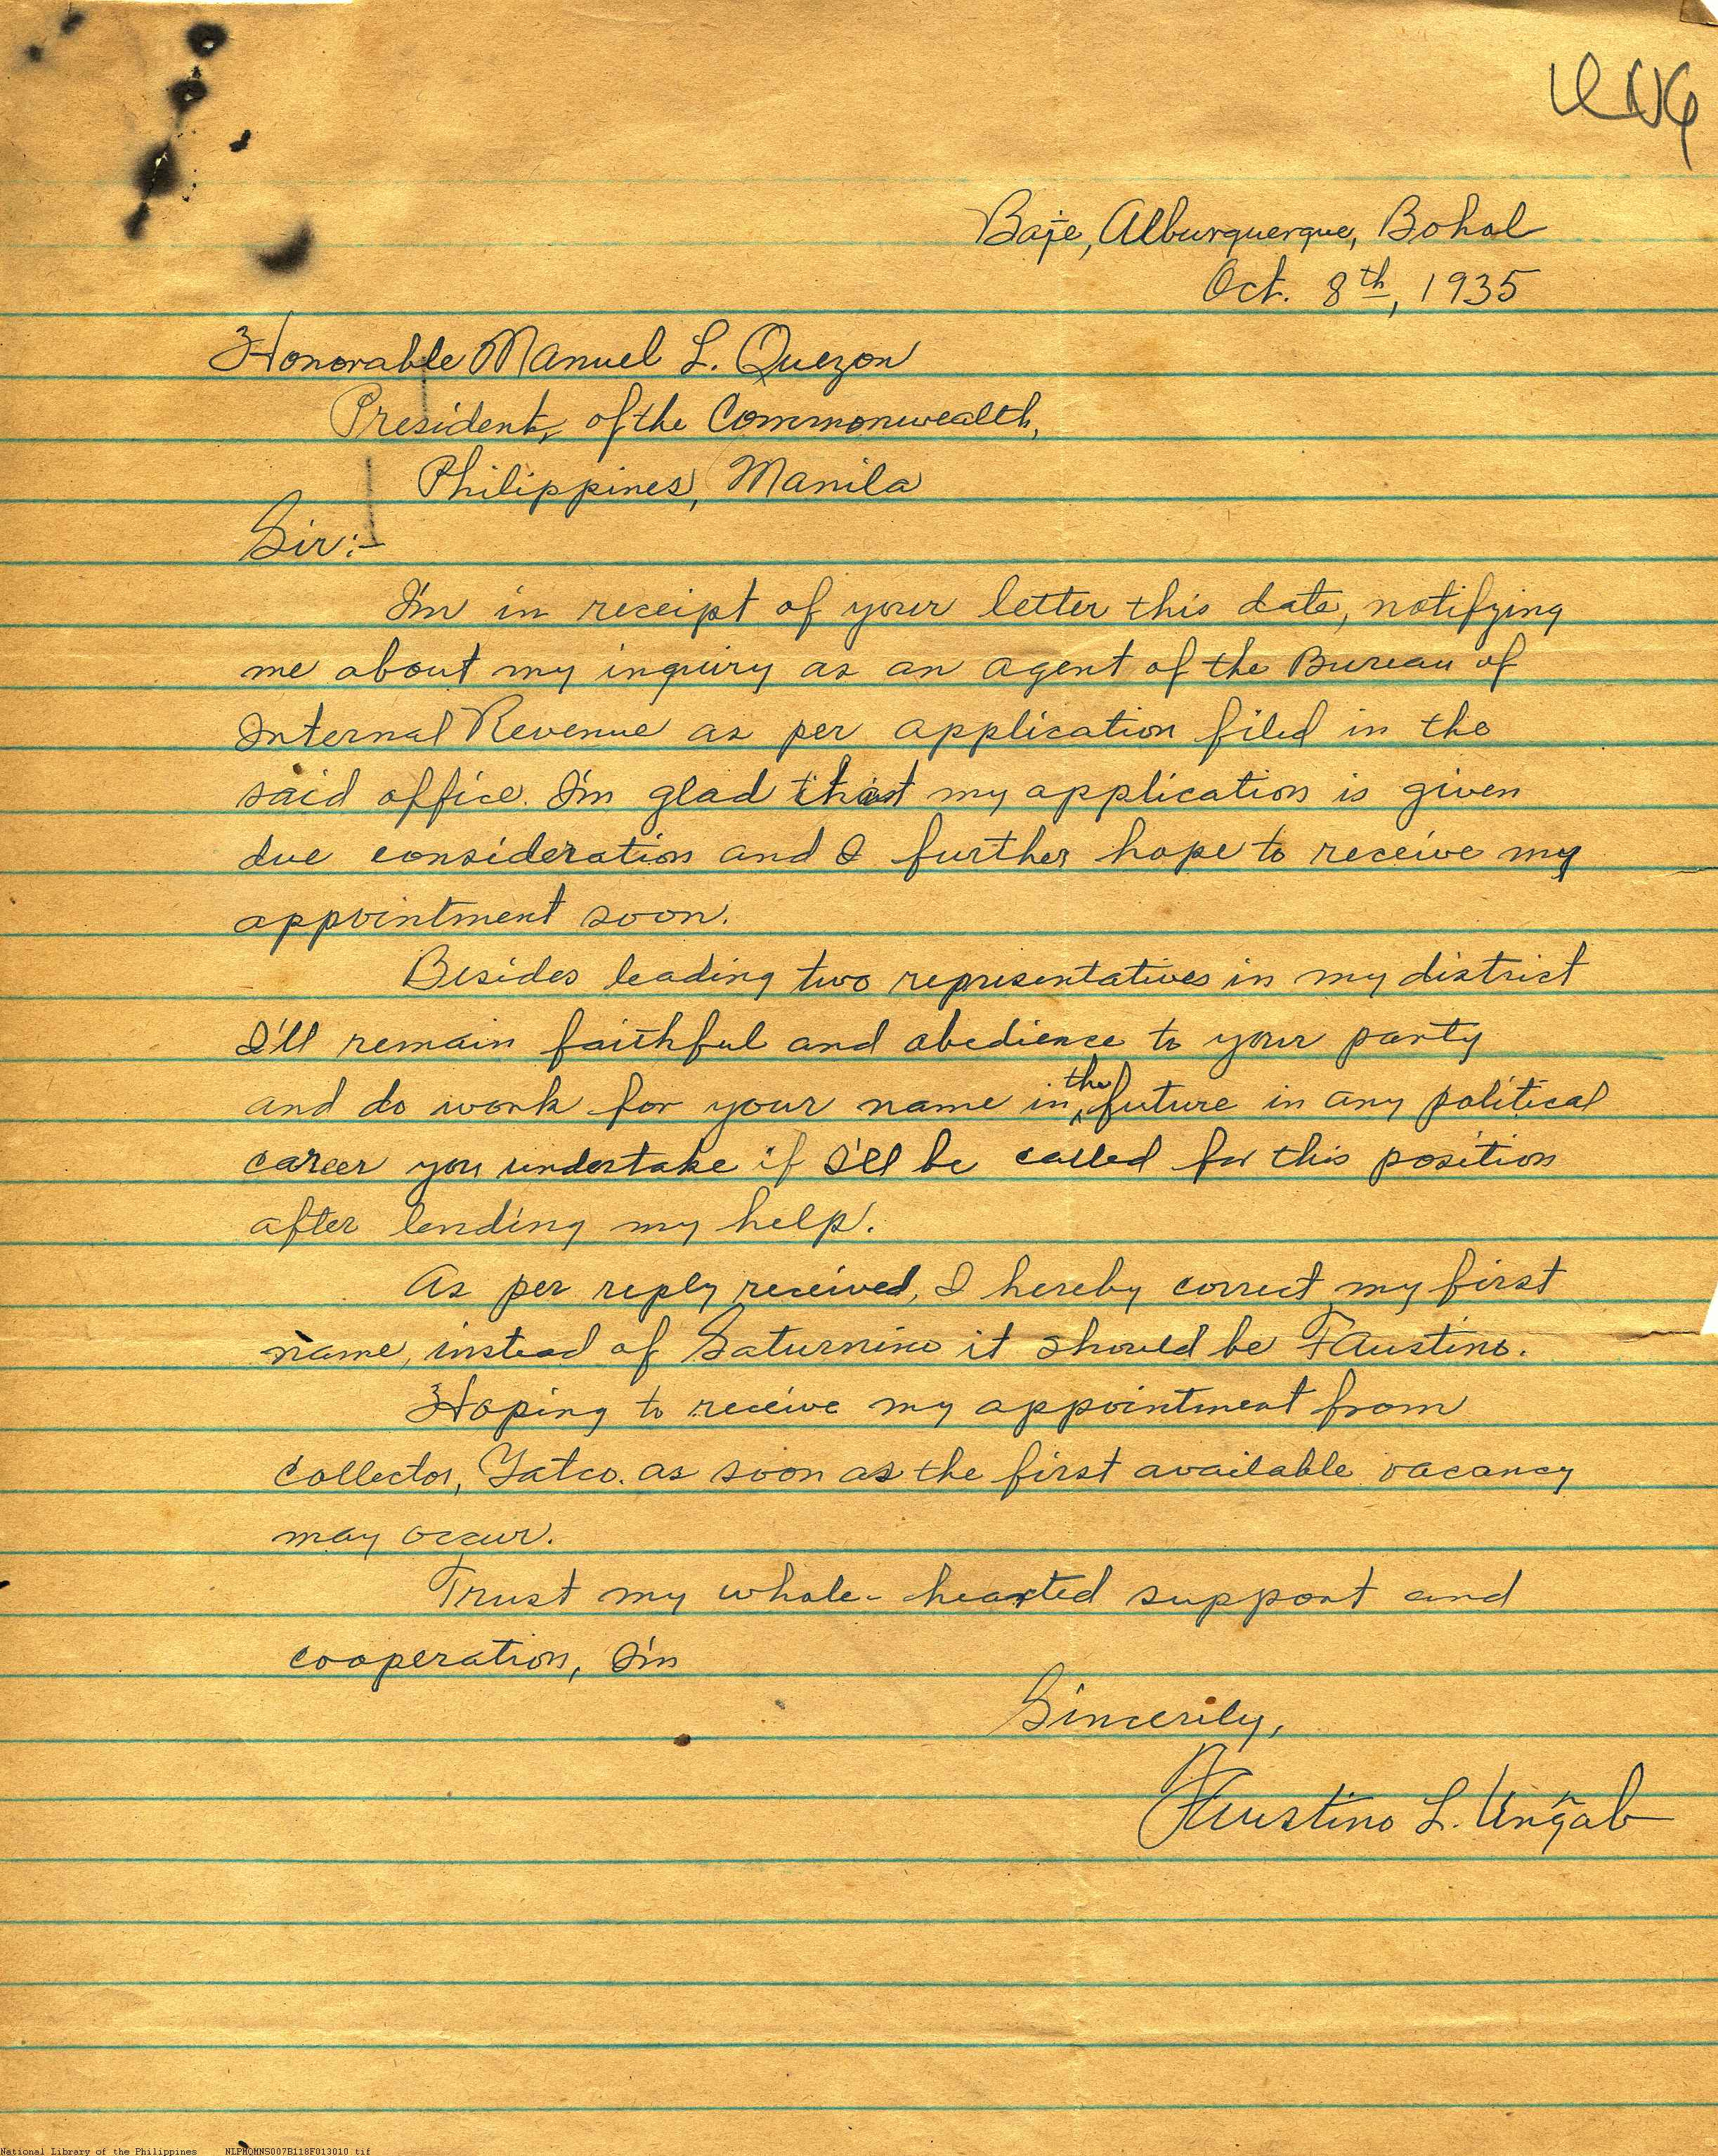 Baje, Alburquerque, Bohol
Oct. 8th, 1935
Honorable Manuel L. Quezon
President, of the Commonwealth,
Philippines, Manila
Sir:-
I'm in receipt of your letter this date, notifying
me about my inquiry as an agent of the Bureau of
Internal Revenue as per application filed in the
said office. I'm glad that my application is given
due consideration and I further hope to receive my
appointment soon.
Besides leading two representatives in my district
I'll remain faithful and abedience to your party
and do work for your name in the future in any political
career you undertake if I'll be called for this position
after lending my help.
As per reply received, I hereby correct my first
name, instead of Saturnino it should be Faustino.
Hoping to receive my appointment from
Collector, Yatco. as soon as the first available vacancy
may occur.
Trust my whole-hearted support and
cooperation, I'm
Sincerily,
Faustino L. Ungab
National Library of the Philippines NLPMQMNS007B118F013010.tif